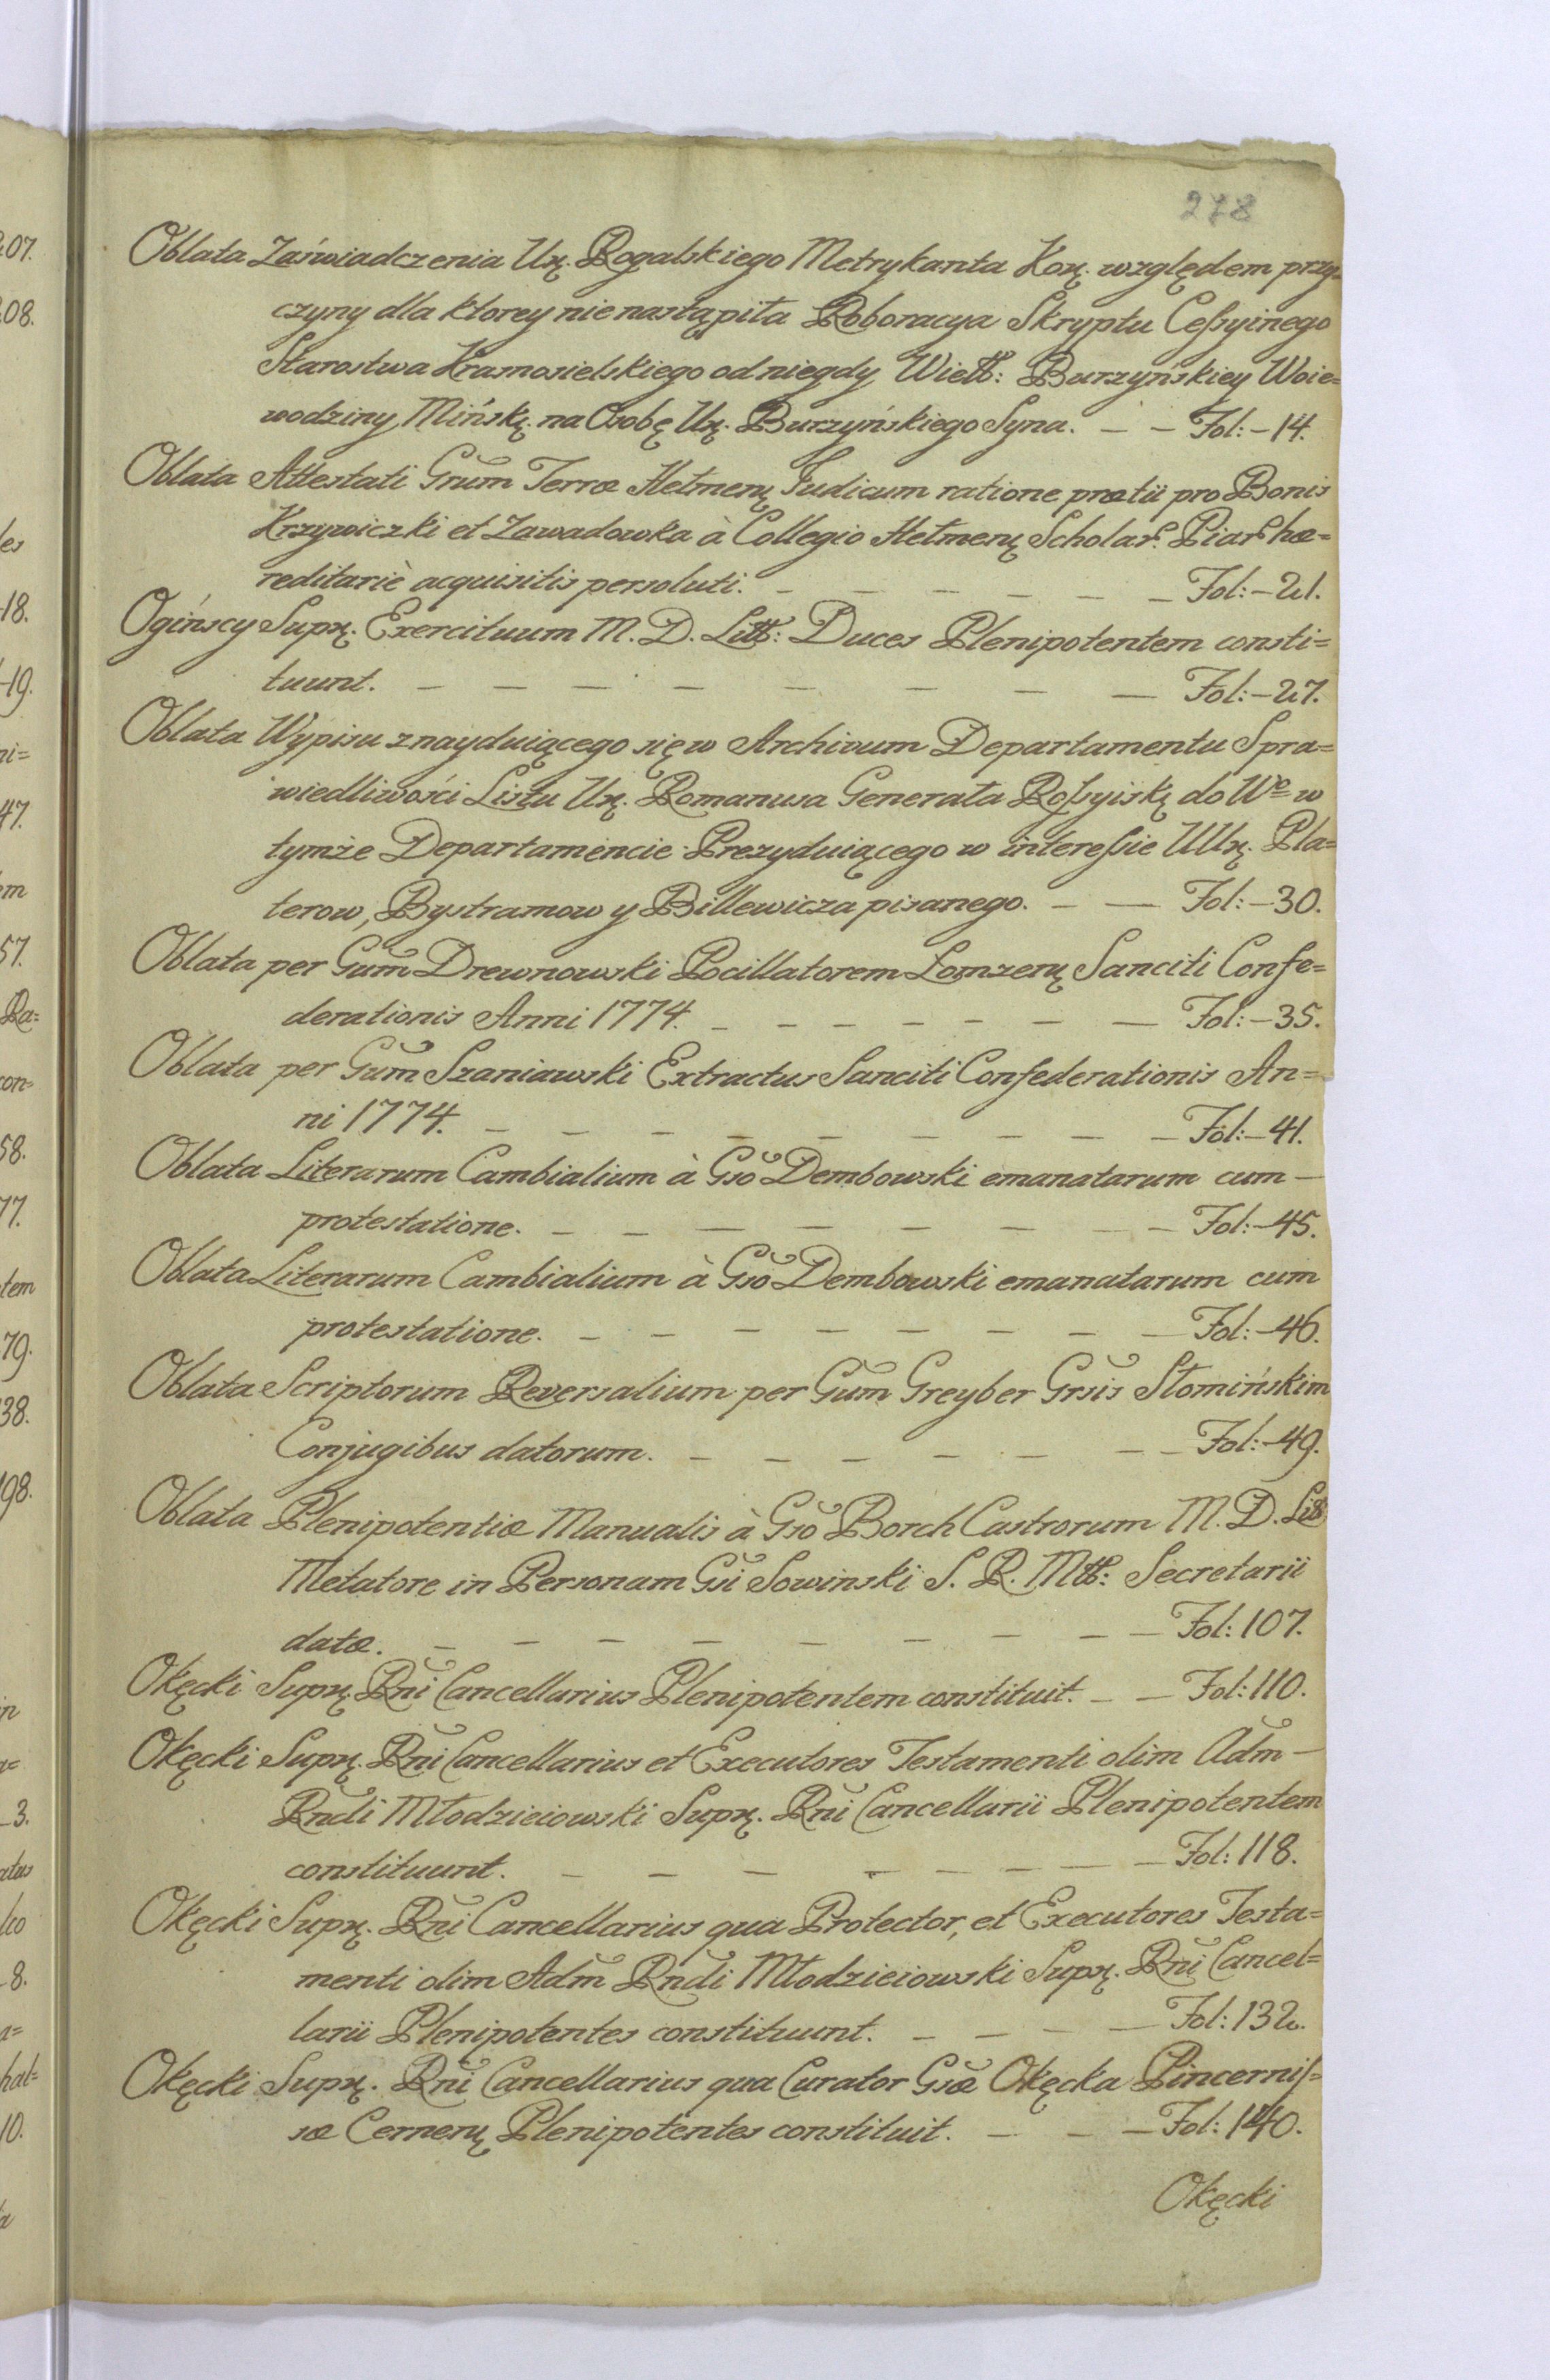 278
Oblata Zaświadczenia Ur. Rogalskiego Metrykanta Kor. względem przy=
czyny dla ktorey nie nastąpiła Roboracya Skryptu Cessyinego
Starostwa Krasnosielskiego od niegdy Wiel: Burzyńskiey Woie=
wodziny Mińskę. na Osobę Ur. Burzyńskiego Syna. — — Fol: — 14.
Oblata Attestati Grum Terræ Chelmeñ Judicum ratione prætii pro Bonis
Krzywiczki et Zawadowka à Collegio Chelmeñ Scholar: Piar: hæ=
reditariè acquisitis persoluti. — — — — — — Fol: — 21.
Ogińscy Supr. Exercituum M. D. Litt: Duces Plenipotentem consti=
tuunt. — — — — — — — — Fol: — 27.
Oblata Wypisu znayduiącego się w Archivum Departamentu Spra=
wiedliwości Listu Ur. Romanusa Generała Rossyisk do Wo w
tymże Departamencie Prezyduiącego w interessie UUr. Pla=
terow, Bystramow y Billewicza pisanego. — — Fol: — 30.
Oblata per Gum Drewnowski Pocillatorem Łomzeñ Sanciti Confe=
derationis Anni 1774. — — — — — — — Fol: — 35.
Oblata per Gum Szaniawski Extractus Sanciti Confederationis An=
ni 1774. — — — — — — — — — Fol: — 41.
Oblata Literarum Cambialium à Gso Dembowski emanatarum cum —
protestatione. — — — — — — — — Fol: — 45.
Oblata Literarum Cambialium à Gso Dembowski emanatarum cum
protestatione. — — — — — — — — Fol: — 46.
Oblata Scriptorum Reversalium per Gum Greyber Grsis Słomińskim
Conjugibus datorum. — — — — — — — Fol: — 49.
Oblata Plenipotentiæ Manualis à Gso Borch Castrorum M. D. Litt
Metatore in Personam Gsi Sowinski S. R. Mtt: Secretarii
datæ. — — — — — — — — — Fol: 107.
Okęcki Supr. Rni Cancellarius Plenipotentem constituit. — — Fol: 110.
Okęcki Supr. Rni Cancellarius et Executores Testamenti olim Adm —
Rndi Młodzieiowski Supr. Rni Cancellarii Plenipotentem
constituunt. — — — — — — — — Fol: 118.
Okęcki Supr. Rni Cancellarius qua Protector, et Executores Testa=
menti olim Adm Rndi Młodzieiowski Supr. Rni Cancel=
larii Plenipotentes constituunt. — — — — Fol: 132.
Okęcki Supr. Rni Cancellarius qua Curator Gsæ Okęcka Pincernis=
sæ Cerneñ Plenipotentes constituit. — — — Fol: 140.
Okęcki